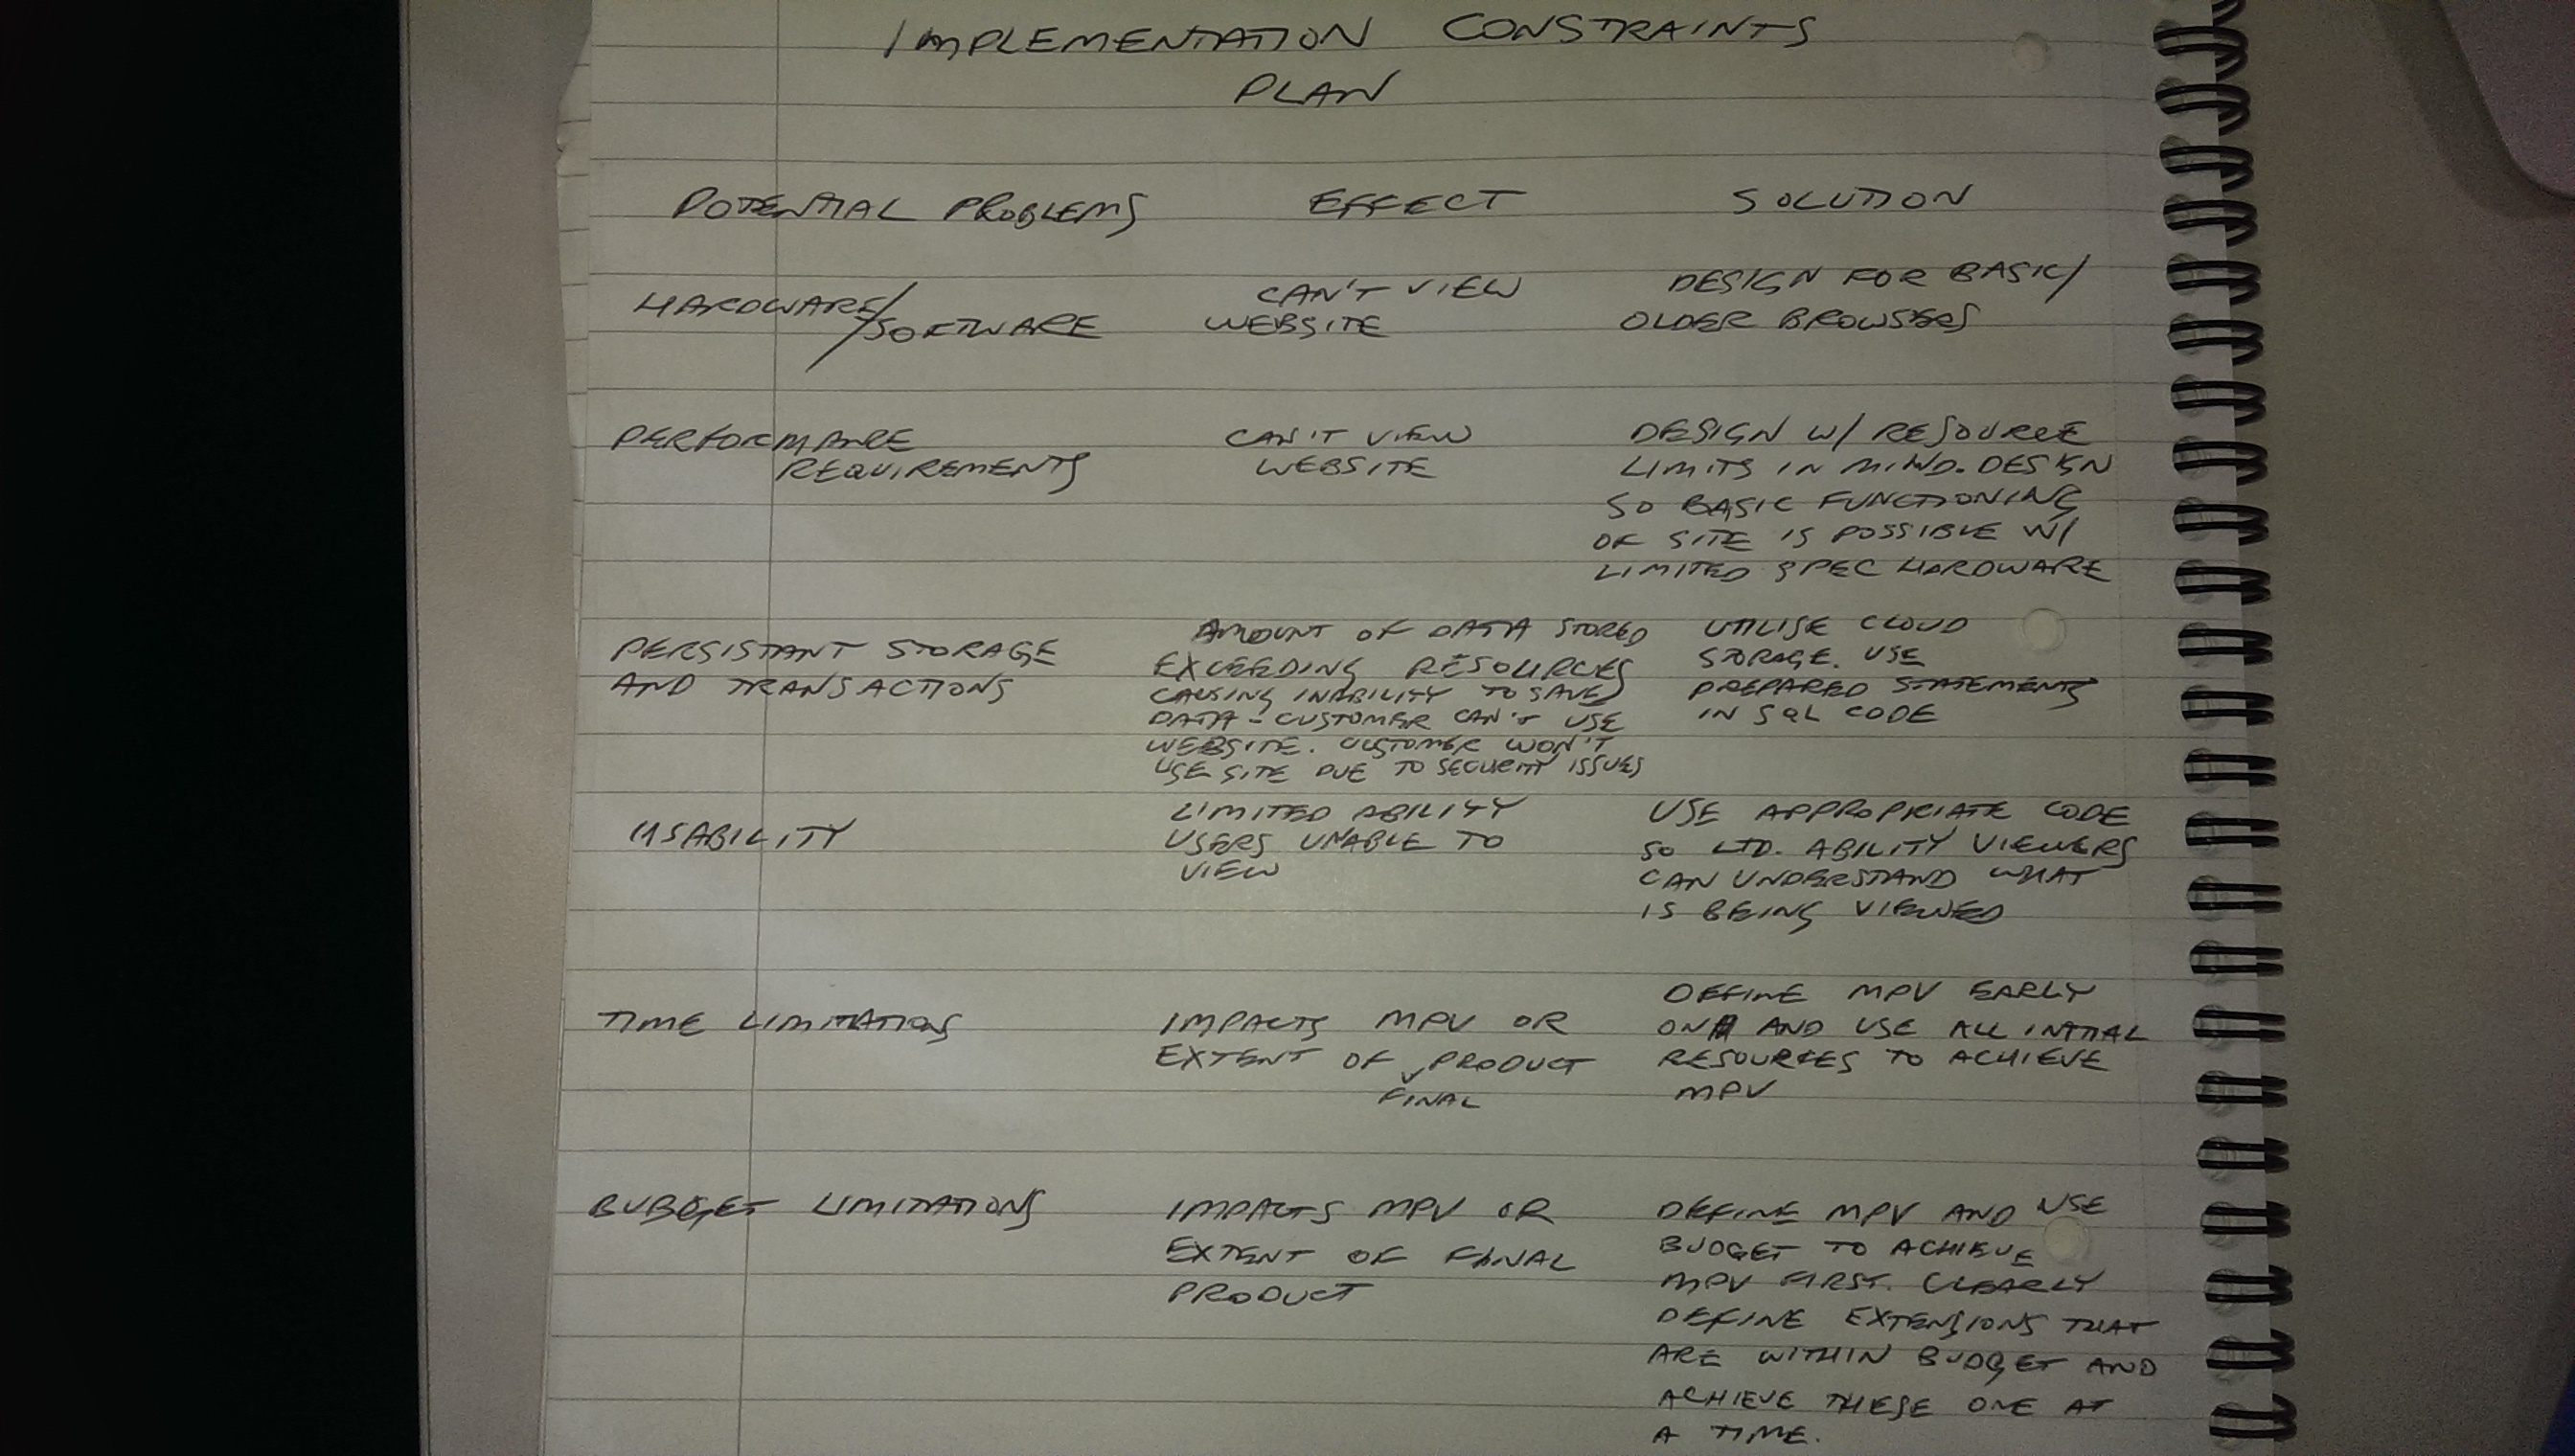 IMPLEMENTATION CONSTRAINTS
PLAN
POTENTIAL PROBLEMS EFFECT SOLUTION
HARDWARE/
SOFTWARE
CAN'T VIEW
WEBSITE
DESIGN FOR BASIC/
OLDER BROWSERS
PERFORMANCE
REQUIREMENTS
CAN'T VIEW
WEBSITE
DESIGN W/ RESOURCE
LIMITS IN MIND. DESIGN
SO BASIC FUNCTIONING
OF SITE IS POSSIBLE W/
LIMITED SPEC HARDWARE
PERSISTANT STORAGE
AND TRANSACTIONS
AMOUNT OF DATA STORED
EXCEEDING RESOURCES
CAUSING INABILITY TO SAVE
DATA - CUSTOMER CAN'T USE
WEBSITE. CUSTOMER WON'T
USE SITE DUE TO SECURITY ISSUES
UTILISE CLOUD
STORAGE. USE
PREPARED STATEMENTS
IN SQL CODE
USABILITY
LIMITED ABILITY
USERS UNABLE TO
VIEW
USE APPROPRIATE CODE
SO LTD. ABILITY VIEWERS
CAN UNDERSTAND WHAT
IS BEING VIEWED
TIME LIMITATIONS
IMPACTS MPV OR
EXTENT OF PRODUCT
FINAL
DEFINE MPV EARLY
ON AND USE ALL INITIAL
RESOURCES TO ACHIEVE
MPV
BUDGET LIMITATIONS
IMPACTS MPV OR
EXTENT OF FINAL
PRODUCT
DEFINE MPV AND USE
BUDGET TO ACHIEVE
MPV FIRST. CLEARLY
DEFINE EXTENSIONS THAT
ARE WITHIN BUDGET AND
ACHIEVE THESE ONE AT
A TIME.